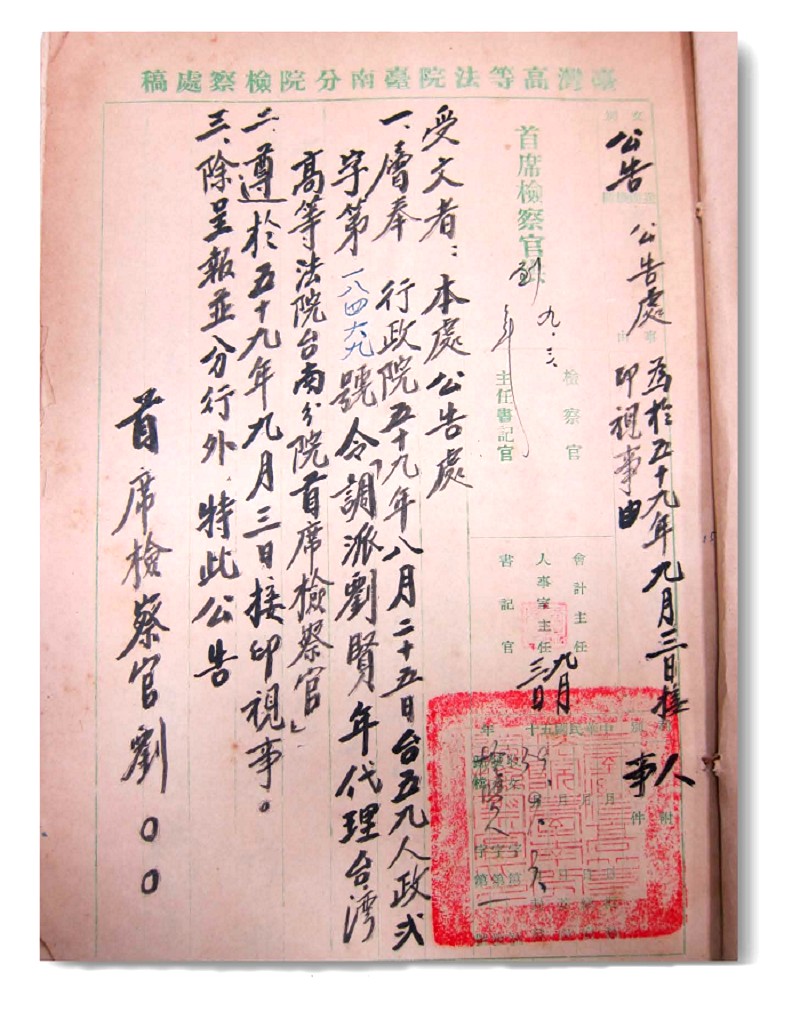 臺灣高等法院臺南分院檢察處稿
文別
公告
公告處
事由
為於五十九年九月三日接
印視事由
人事
附件
首席檢察官
劉
年
九.三.
檢察官
主任書記官
會計主任
人事室主任
書記官
九月
三日
中華民國五十年
受文者：本處公告處
一、層奉 行政院五十九年八月二十五日台五九人政弍
字第一八四六九號令「調派劉賢年代理台灣
高等法院台南分院首席檢察官」
二、遵於五十九年九月三日接印視事。
三、除呈報並分行外，特此公告
首席檢察官劉○○